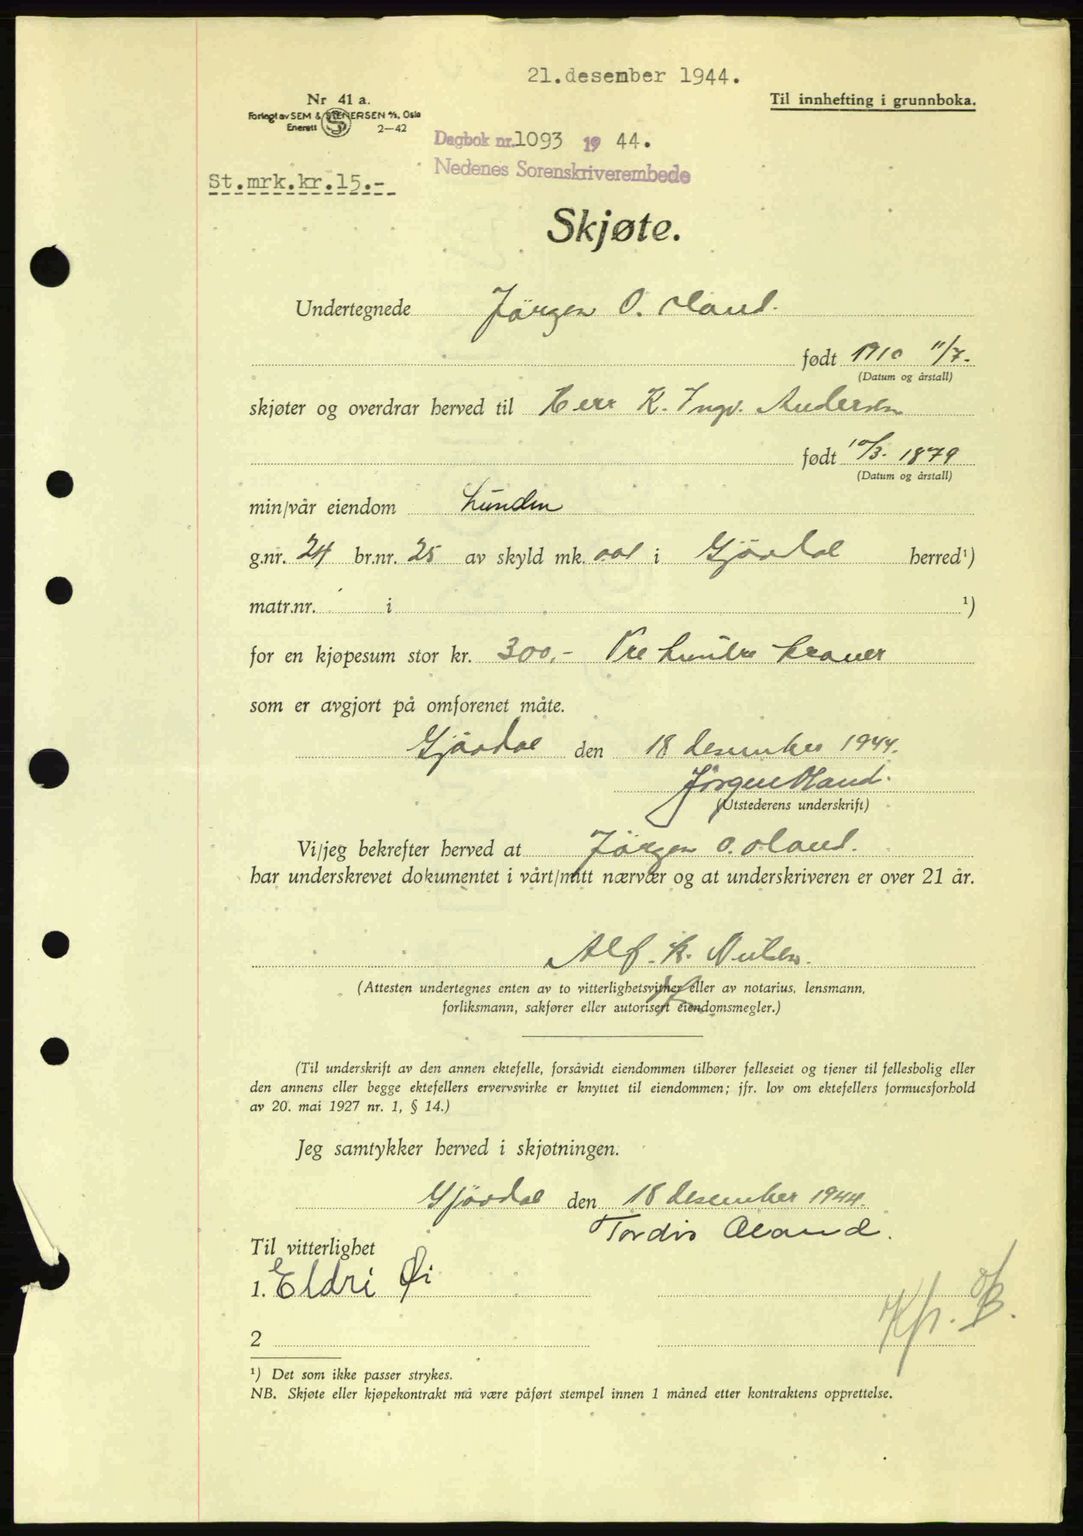 21.desember 1944.
Nr 41 a.
Til innhefting i grunnboka.
Forlagt av SEM & STENERSEN A/S, Oslo
Enerett 2-42
Dagbok nr. 1093 19 44.
Nedenes Sorenskriverembede
St.mrk.kr.15.-
Skjøte.
Undertegnede Jörgen O. Aland.
født 1910 11/7.
(Datum og årstall)
skjøter og overdrar herved til Herr K. Ingv. Andersen
født 10/3. 1879
(Datum og årstall)
min/vår eiendom Lunden
g.nr. 24 br.nr. 25 av skyld mk. i Gjövdal herred¹)
matr.nr. i ¹)
for en kjøpesum stor kr. 300,- Tre hundre kroner
som er avgjort på omforenet måte.
Gjövdal den 18 desember 1944.
Jörgen Aland.
(Utstederens underskrift)
Vi/jeg bekrefter herved at Jörgen O. Aland.
har underskrevet dokumentet i vårt/mitt nærvær og at underskriveren er over 21 år.
Alf. K. Nilsen.
(Attesten undertegnes enten av to vitterlighetsvitner eller av notarius, lensmann,
forliksmann, sakfører eller autorisert eiendomsmegler.)
(Til underskrift av den annen ektefelle, forsåvidt eiendommen tilhører felleseiet og tjener til fellesbolig eller
den annens eller begge ektefellers ervervsvirke er knyttet til eiendommen; jfr. lov om ektefellers formuesforhold
av 20. mai 1927 nr. 1, § 14.)
Jeg samtykker herved i skjøtningen.
Gjövdal den 18 desember 1944.
Tordis Aland.
Til vitterlighet
1. Eldri Øi
2
¹) Det som ikke passer strykes.
NB. Skjøte eller kjøpekontrakt må være påført stempel innen 1 måned etter kontraktens opprettelse.